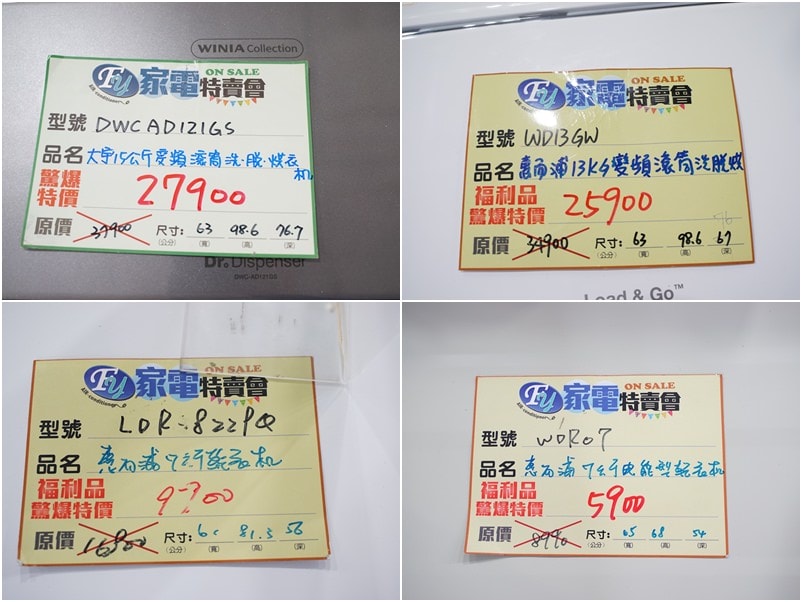 WINIA Collection
FU 家電特賣會 ON SALE
air conditioner
型號 DWC AD121GS
品名 大宇15公斤變頻滾筒洗脫烘衣机
驚爆特價 27900
原價 37900 尺寸: 63 98.6 76.7
(公分) (寬) (高) (深)
Dr. Dispenser
DWC-AD121GS
FU 家電特賣會 ON SALE
air conditioner
型號 WD13GW
品名 惠而浦13KG變頻滾筒洗脫烘
福利品
驚爆特價 25900
原價 34900 尺寸: 63 98.6 67
(公分) (寬) (高) (深)
Load & Go™
FU 家電特賣會 ON SALE
air conditioner
型號 LDR-8229Q
品名 惠而浦7公斤乾衣机
福利品
驚爆特價
原價 16900 尺寸: 81.3 56
(公分) (寬) (高) (深)
FU 家電特賣會 ON SALE
air conditioner
型號 WDR07
品名 惠而浦7公斤電能型乾衣机
福利品
驚爆特價 5900
原價 8990 尺寸: 65 68 54
(公分) (寬) (高) (深)